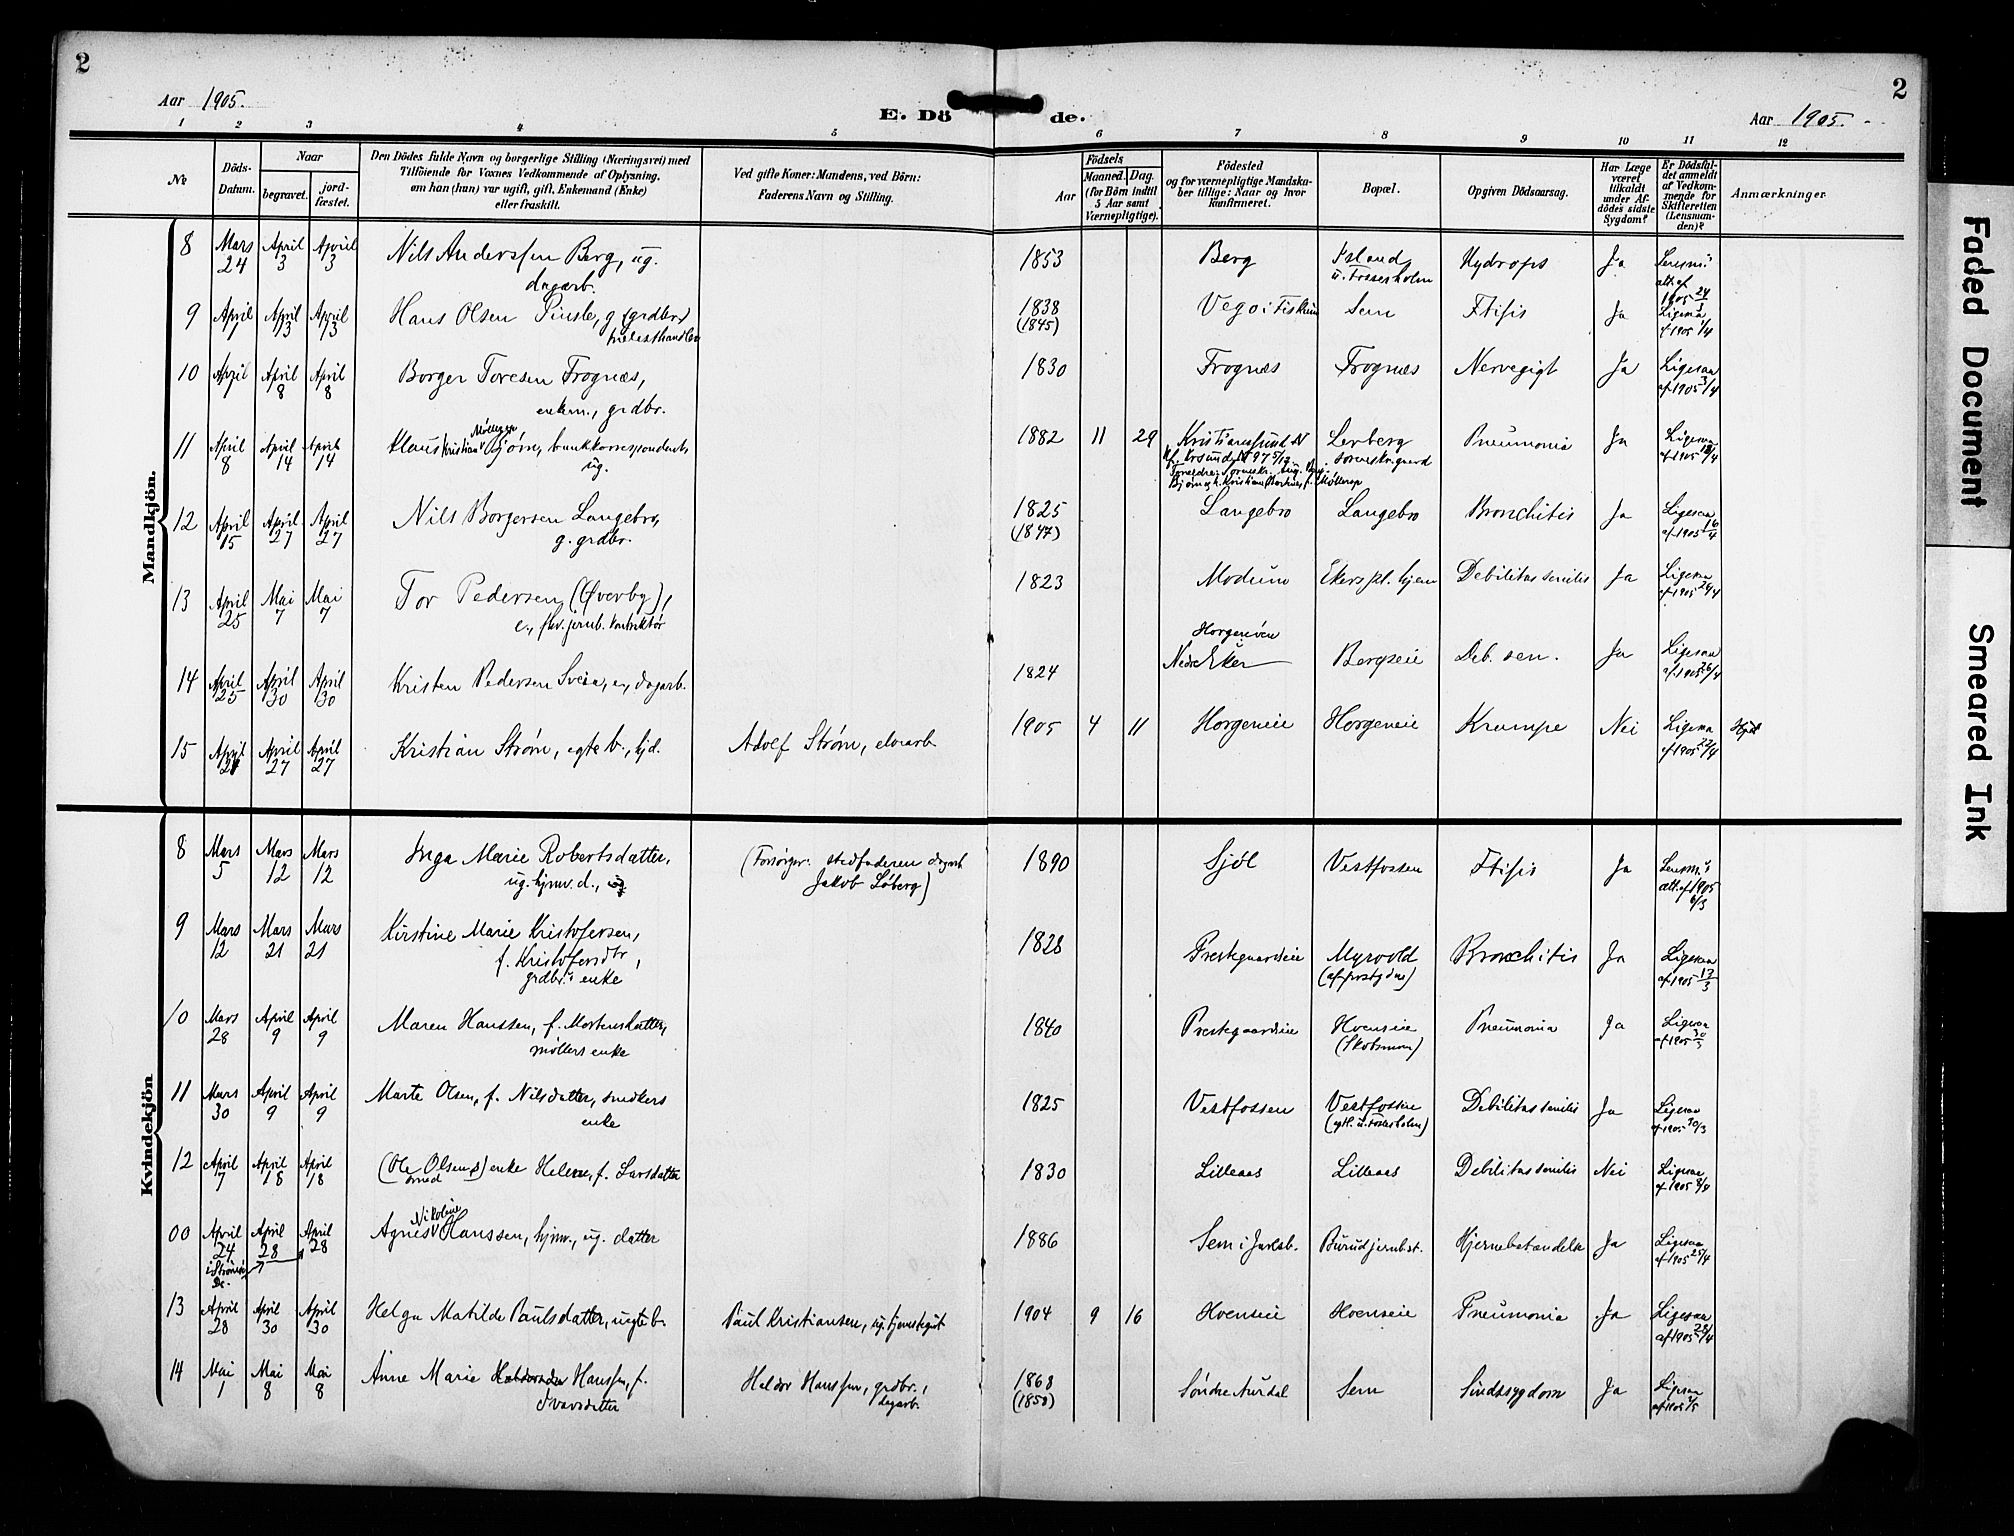 2
2
Aar 1905.
E. Dö de.
Aar 1905.
1 2 3 4 5 6 7 8 9 10 11 12
№
Döds-
Datum.
Naar
begravet.
jord-
fæstet.
Den Dödes fulde Navn og borgerlige Stilling (Næringsvei) med
Tilföiende for Voxnes Vedkommende af Oplysning,
om han (hun) var ugift, gift, Enkemand (Enke)
eller fraskilt.
Ved gifte Koner: Mandens, ved Börn:
Faderens Navn og Stilling.
Födsels
Aar
Maaned.
Dag.
(for Börn indtil
5 Aar samt
Værnepligtige).
Födested
og for værnepligtige Mandska-
ber tillige: Naar og hvor
konfirmeret.
Bopæl.
Opgiven Dödsaarsag.
Har Læge
været
tilkaldt
under Af-
dödes sidste
Sygdom?
Er Dödsfal-
det anmeldt
af Vedkom-
mende for
Skifteretten
(Lensman-
den)?
Anmærkninger
Mandkjön.
8 Mars 24 April 3 April 3 Nils Anderssen Berg, ug.
dagarb.
1853 Berg
u. Fossesholm
Hydrops Ja
9 April 1 April 13 April 13 Hans Olsen g. (grdbr.)
hesthandler
1838
(1845)
Sem Ftisis Ja Ligesaa
af 1905 1/4
10 April April 8 April 8 Borger Toresen Frognæs,
enkem., grdbr.
1830 Frognæs Frognæs Nervegigt Ja Ligesaa
af 1905 3/4
11 April 8 April 14 April 14 Klaus Kristian Møllegaa Bjørn, bankkorrespondents
ug.
1882 11 29 Kristianssund N
Lerberg
sorenskr.gaard
Pneumonia Ja Ligesaa
12 April 15 April 27 April 27 Nils Borgersen Langebro,
g. grdbr.
1825
(1847)
Langebro Langebro Bronchitis Ja Ligesaa
af 1905 16/4
13 April 25 Mai 7 Mai 7 Tor Pedersen (Øverby),
e., fhv. jernb. kontraktør
1823 Modum Ekers pl. hjem Debilitas senilis Ja Ligesaa
af 1905 26/4
14 April 25 April 30 April 30 Kristen Pedersen Svea, e., dagarb.
1824 Horgeneven
Nedre Eker Bergseie Deb. sen. Ja Ligesaa
af 1905 26/4
15 April 21 April 27 April 27 Kristian Strøm, egte b., hjd.
Adolf Strøm, elvarb.
1905 4 11 Horgeneie Horgeneie Krampe Nei Ligesaa
af 1905 22/4
Kvindekjön
8 Mars 5 Mars 12 Mars 12 Inga Marie Robertsdatter,
ug. hjmv. d., ug
(Forsørger: stedfaderen dagarb
Jakob Løberg)
1890 Sjøl Vestfossen Ftisis Ja Lensm.'s
att. af 1905
6/3
9 Mars 12 Mars 21 Mars 21 Kirstine Marie Kristofersen,
f. Kristofersdtr,
grdbr.'s enke
1828 Prestegaardseie Myrvold
Bronchitis Ja Ligesaa
af 1905 13/3
10 Mars 28 April 9 April 9 Maren Hanssen, f. Mortensdatter,
møllers enke
1840 Prestegaardseie Hoenseie
(Skotsmoen)
Pneumonia Ja Ligesaa
af 1905 30/3
11 Mars 30 April 9 April 9 Marte Olsen, f. Nilsdatter, snedkers
enke
1825 Vestfossen Vestfossen
(egtl. u. Fossesholm)
Debilitas senilis Ja Ligesaa
af 1905 30/3
12 April 7 April 18 April 18 (Ole Olsens) enke Helene, f. Larsdatter
smed
1830 Lilleaas Lilleaas Debilitas senilis Nei Ligesaa
af 1905 8/4
00 April 24 April 28 April 28 Agnes Nikoline Hanssen, hjmv., ug. datter
i Strømsø
1886 Sem i Jarlsb. Burud jernb.st. Hjernebetændelse Ja Ligesaa
af 1905 25/4
13 April 28 April 30 April 30 Helga Matilde Paulsdatter, uegte b.
Paul Kristiansen, ug. tjenestegut
1904 9 16 Hoenseie Hoenseie Pneumonia Ja Ligesaa
af 1905 28/4
14 Mai 1 Mai 8 Mai 8 Anne Marie Hanssen, f.
Ivarsdatter
Heldor Hanssen, grdbr.,
dagarb.
1868
(1858)
Søndre Aurdal Sem Sindssygdom Ja Ligesaa
af 1905 1/5
Faded Document
Smeared Ink